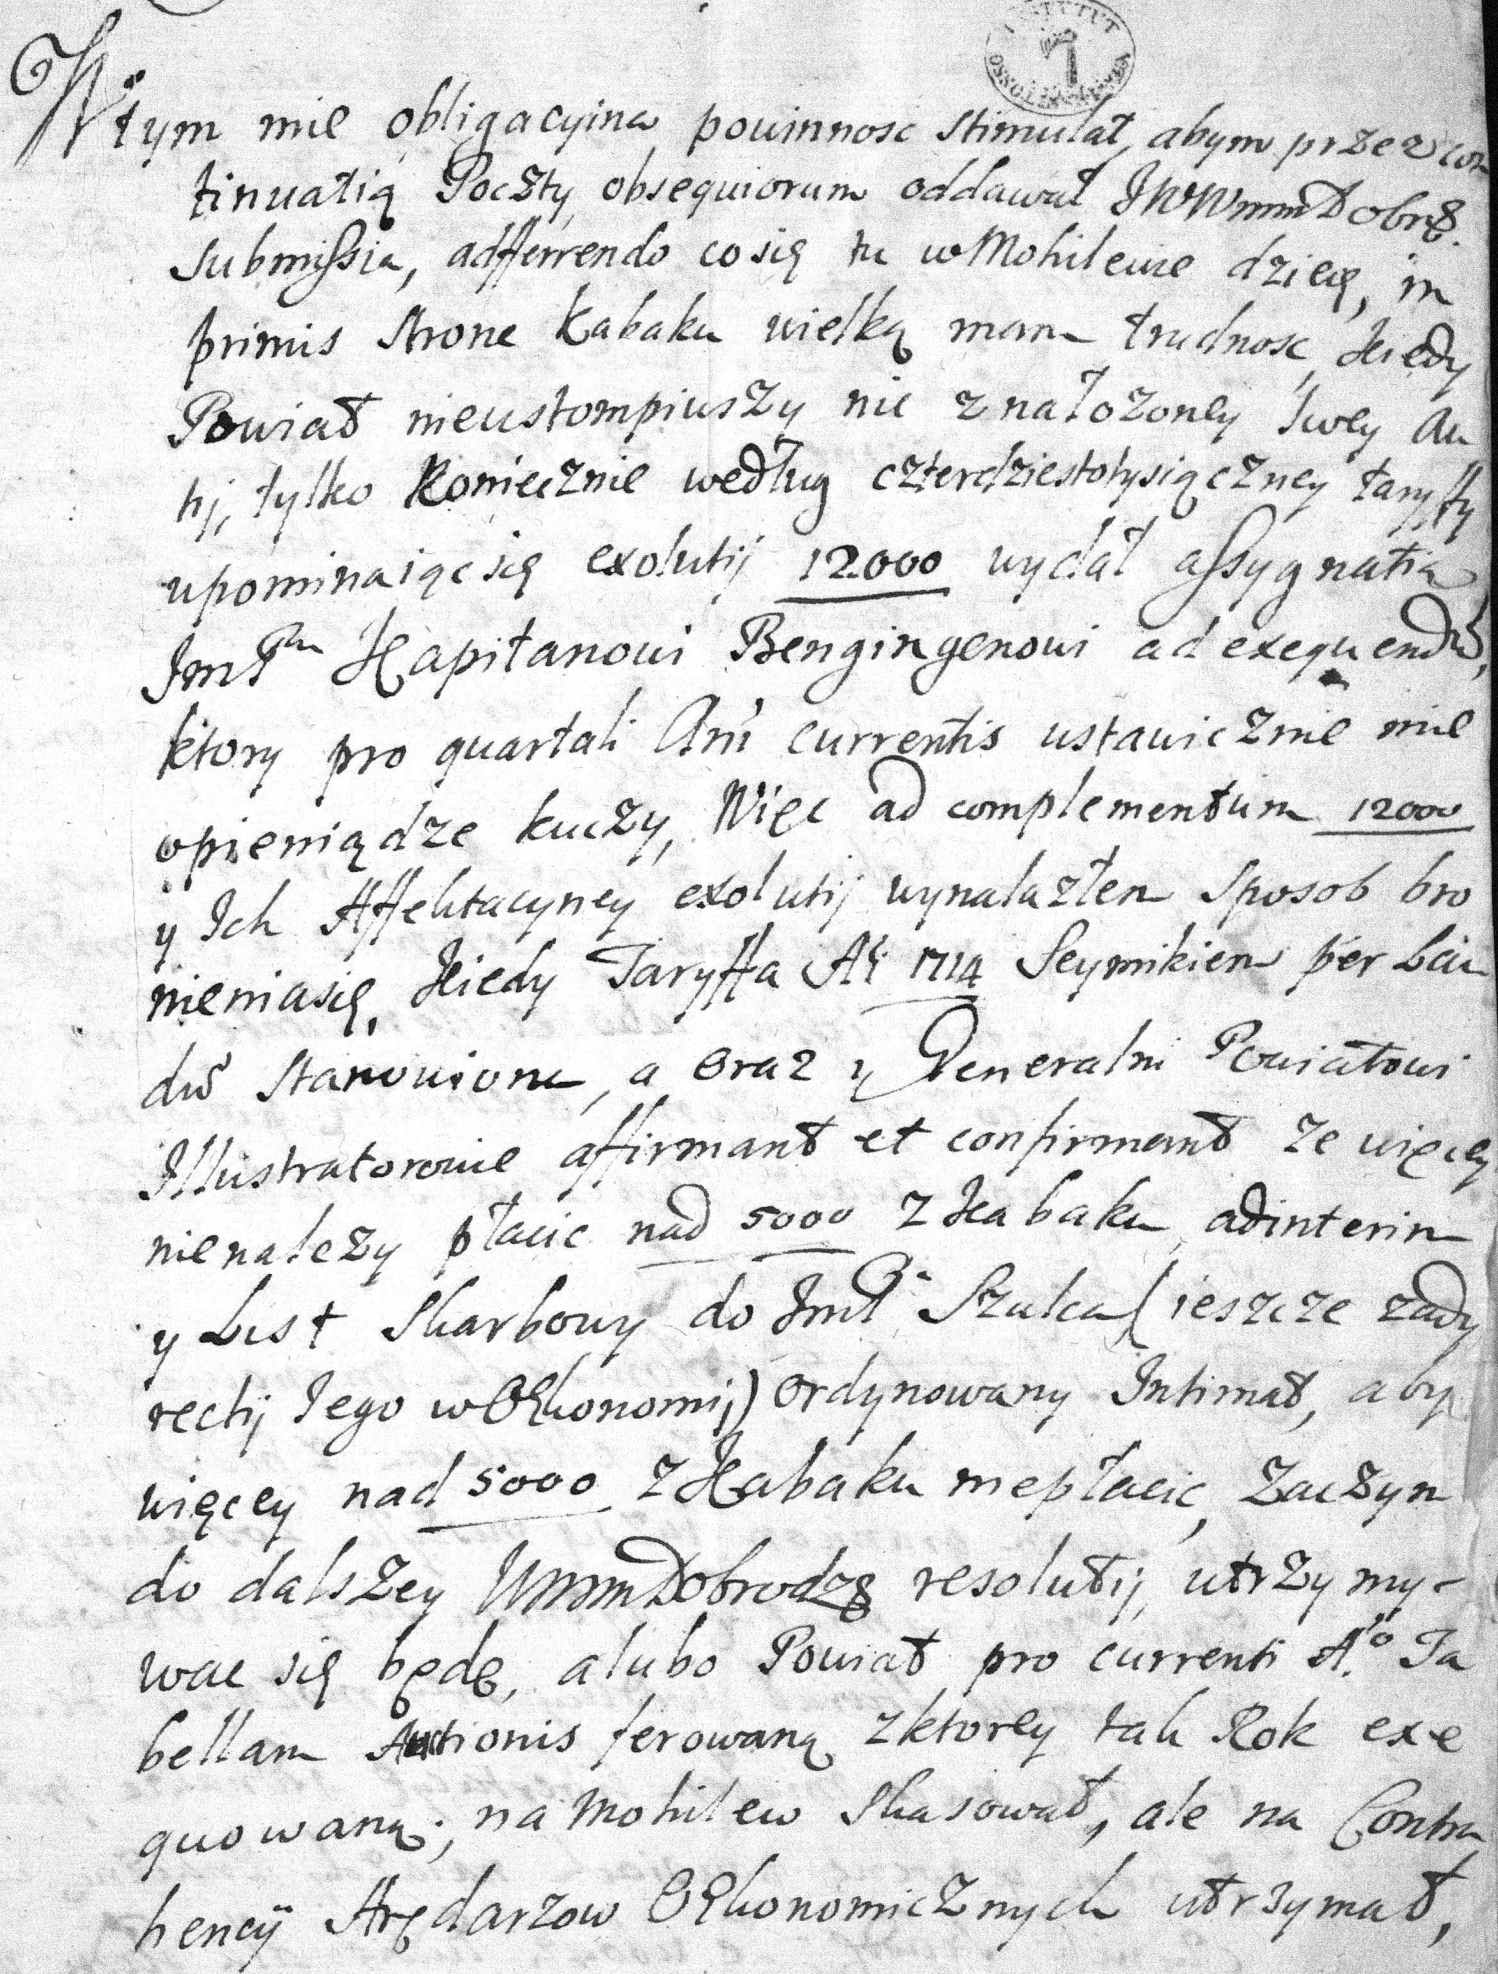 INSTYTUT OSSOLIŃSKICH
W tym mie obligacyina powinnosc stimulat, abym przez con
tinuatią Poczty obsequiorum oddawał JWWmmDobrą.
submissia, adfferrendo co się tu w Mohilewie dzieię, in
primis strone kabaku wielką mam trudnosc, kiedy
Powiat nieustompiuszy nic z nałozoney swey Au
tij, tylko koniecznie według czterdziestotysiączney taryffy
upominaiąc się exolutij 12000 wydał assygnatia
Jm Pan Kapitanowi Bengingenowi ad exequendu,
ktory pro quartali Ani currentis ustawicznie mie
o pieniądze kuczy, Więc ad complementum 12000
y Ich Affektacyney exolutij wynalazłem sposob bro
nienia się, kiedy Taryffa Ai 1714 Seymikiem per Lau
du stanowiona, a oraz y Generalni Powiatowi
Illustratorowie affirmant et confirmant ze więcey
nienalezy płacic nad 5000 z kabaku, adinterim
y List Skarbowy do Jm Pa Szulca (ieszcze za dy
rectij Iego w OEkonomij) ordynowany Intimat, aby
więcey nad 5000 z Kabaku niepłacic, zaczym
do dalszey WmmDobrodzą resolutij, utrzymy-
wac się będę, alubo Powiat pro currenti Ao Ta
bellam Auctionis ferowaną z ktorey tak Rok exe
quowaną, na Mohilew skasował, ale na Contra
hencij Arędarzow OEkonomicznych utrzymał,